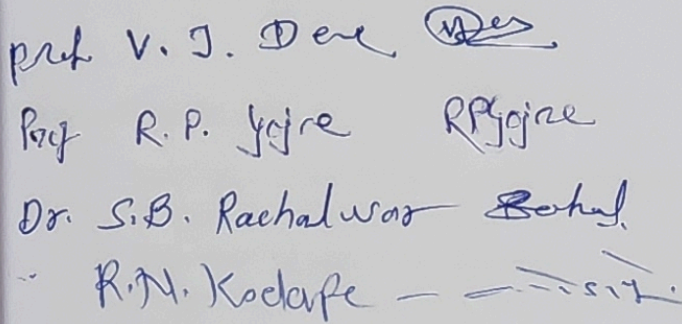 Prof V. J. Dere
Prof R. P. Yojre RPYojre
Dr. S.B. Rachalwar
" R.N. Kodape